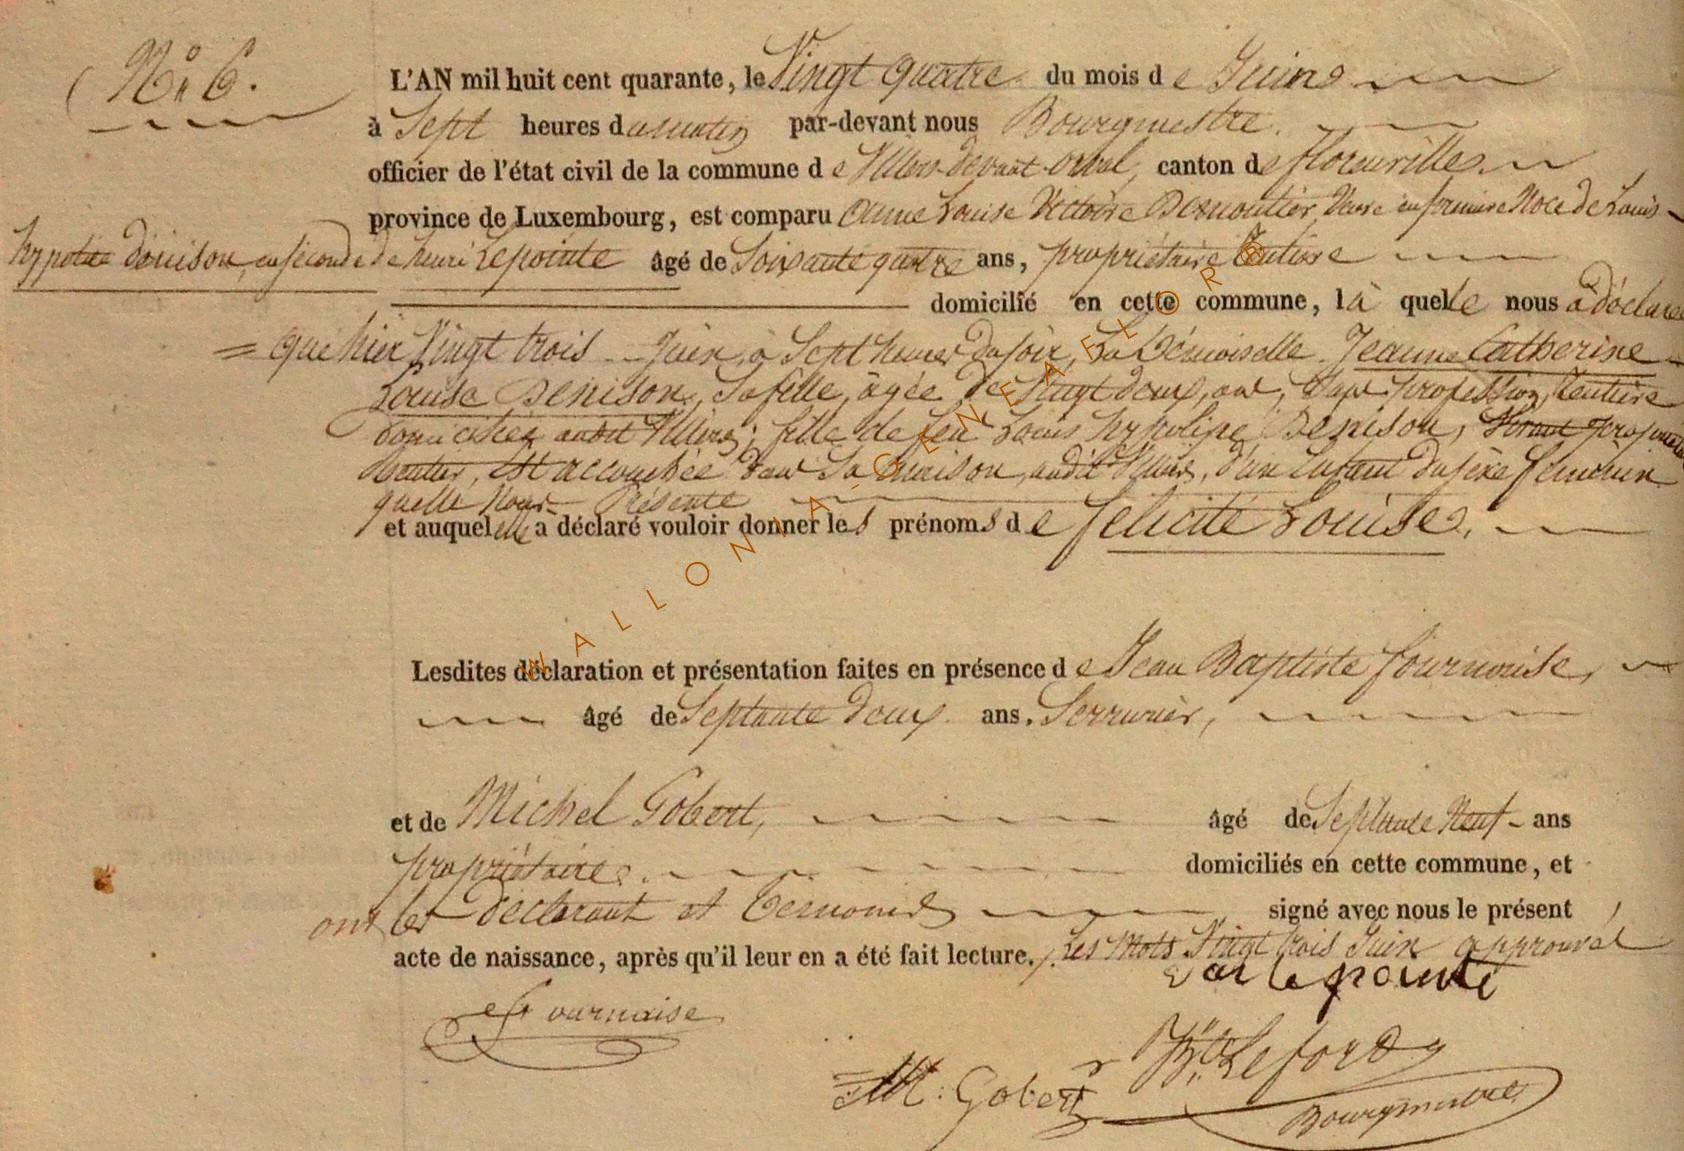 N° 6.
L'AN mil huit cent quarante, le Vingt quatre du mois de Juin
à Sept heures du matin par-devant nous Bourgmestre.
officier de l'état civil de la commune de Villers devant orval, canton de florenville.
province de Luxembourg, est comparu anne Louise Victoire Demoutier, Veuve en premiere Noce de Louis
hypolite dénison, en seconde de henri Lepointe âgé de Soixante quatre ans, propriétaire Rentiere
domicilié en cette commune, la quelle nous a déclaré
que hier Vingt trois Juin, à Sept heures du soir, la Démoiselle Jeanne Catherine
Louise Denison, Sa fille, âgée de Vingt deux, ans, Sans profession, Rentiere
Domiciliée audit Villers; fille de feu Louis hypolipe Denison,
Rentier, Est accouchée dans Sa maison, audit Villers, d'un Enfant du sèxe féminin
quelle Nous Présente
et auquel elle a déclaré vouloir donner les prénoms de félicité Louise.
Lesdites déclaration et présentation faites en présence de Jean Baptiste fournaise,
âgé de Septante deux ans. Serrurier,
et de Michel Gobert, âgé de Septante Neuf ans
propriétaire. domiciliés en cette commune, et
ont les déclarant et Témoins signé avec nous le présent
acte de naissance, après qu'il leur en a été fait lecture. Les mots Vingt trois Juin approuvé
lepointe
Fournaise
M. Gobert
Lefort
Bourgmestre
WALLONIA GENEAFLORE